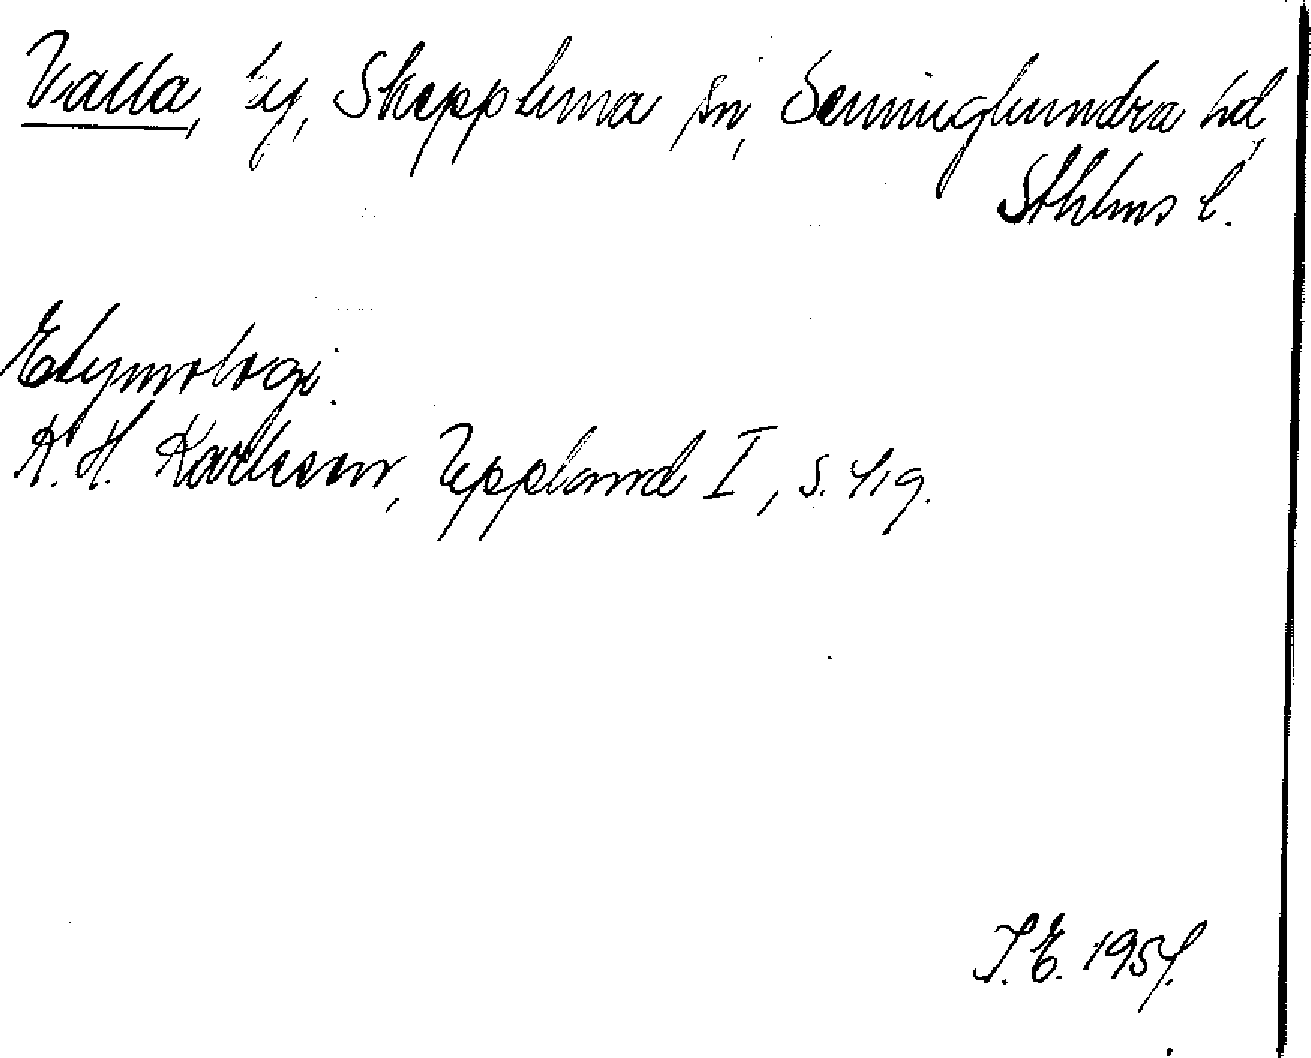 Valla, by, Skepptuna sn, Seminghundra hd,
Sthlms l.
Etymologi.
K. H. Karlsson, Uppland I, s. 419.
I. E. 1954.